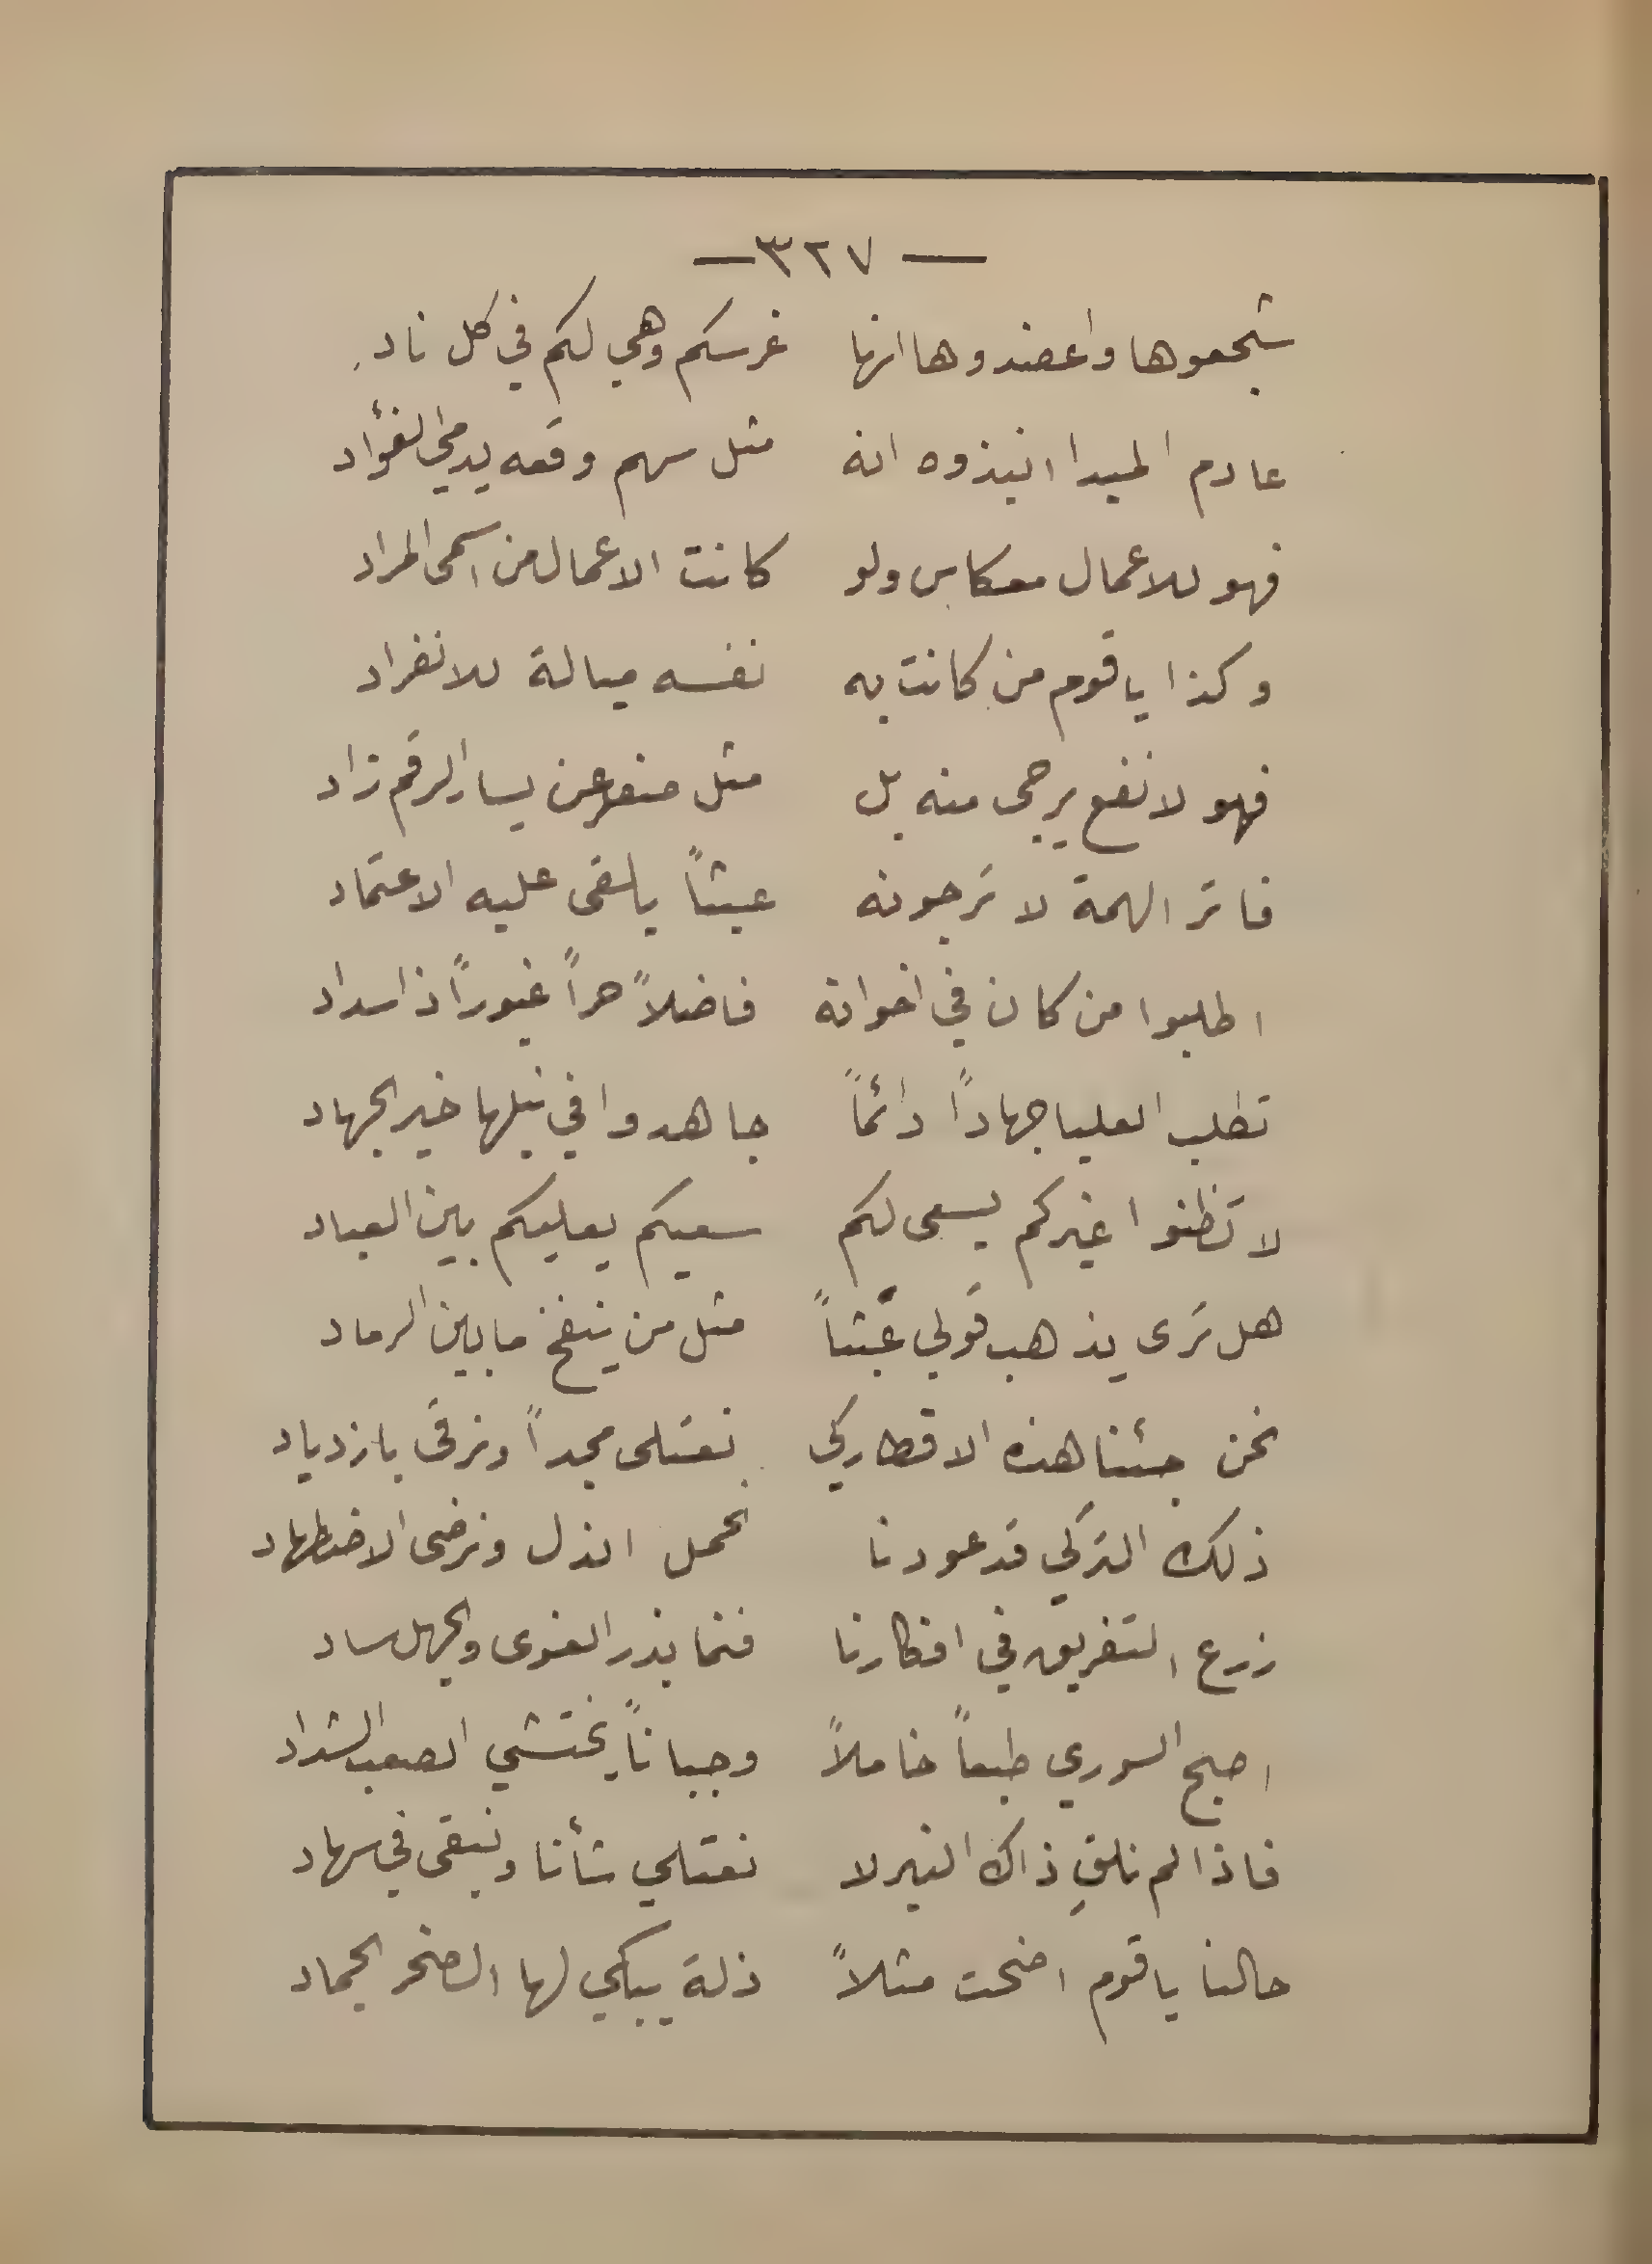 — ٣٢٧ —
شجعوها واعضدوها انها غرسكم وهي لكم في كل ناد
عادم المبدا انبذوه انه مثل سهم وقعه يدمي الفؤاد
فهو للاعمال معكاس ولو كانت الاعمال من اسمى المراد
وكذا يا قوم من كانت به نفسه ميالة للانفراد
فهو لا نفع يرجى منه بل مثل صفر عن يسار الرقم زاد
فاتر الهمة لا ترجونه عبثاً يلقى عليه الاعتماد
اطلبوا من كان في اخوانه فاضلاً حراً غيوراً ذا سداد
تطلب العليا جهاداً دائماً جاهدوا في نيلها خير الجهاد
لا تظنوا غيركم يسعى لكم سعيكم يعليكم بين العباد
هل ترى يذهب قولي عبثاً مثل من ينفخ ما بين الرماد
نحن جئنا هذه الاقطار كي نعتلى مجداً ونرقى بازدياد
ذلك التركي قد عودنا نحمل الذل ونرضى الاضطهاد
زرع التفريق في افكارنا فنما بذر الغوى والجهل ساد
اصبح السوري طبعاً خاملاً وجباناً يختشي الصعب الشداد
فاذا لم نلقِ ذاك النير لا نعتلي شأنا ونبقى في سهاد
حالنا يا قوم اضحت مثلاً ذلة يبكي لها الصخر الجماد